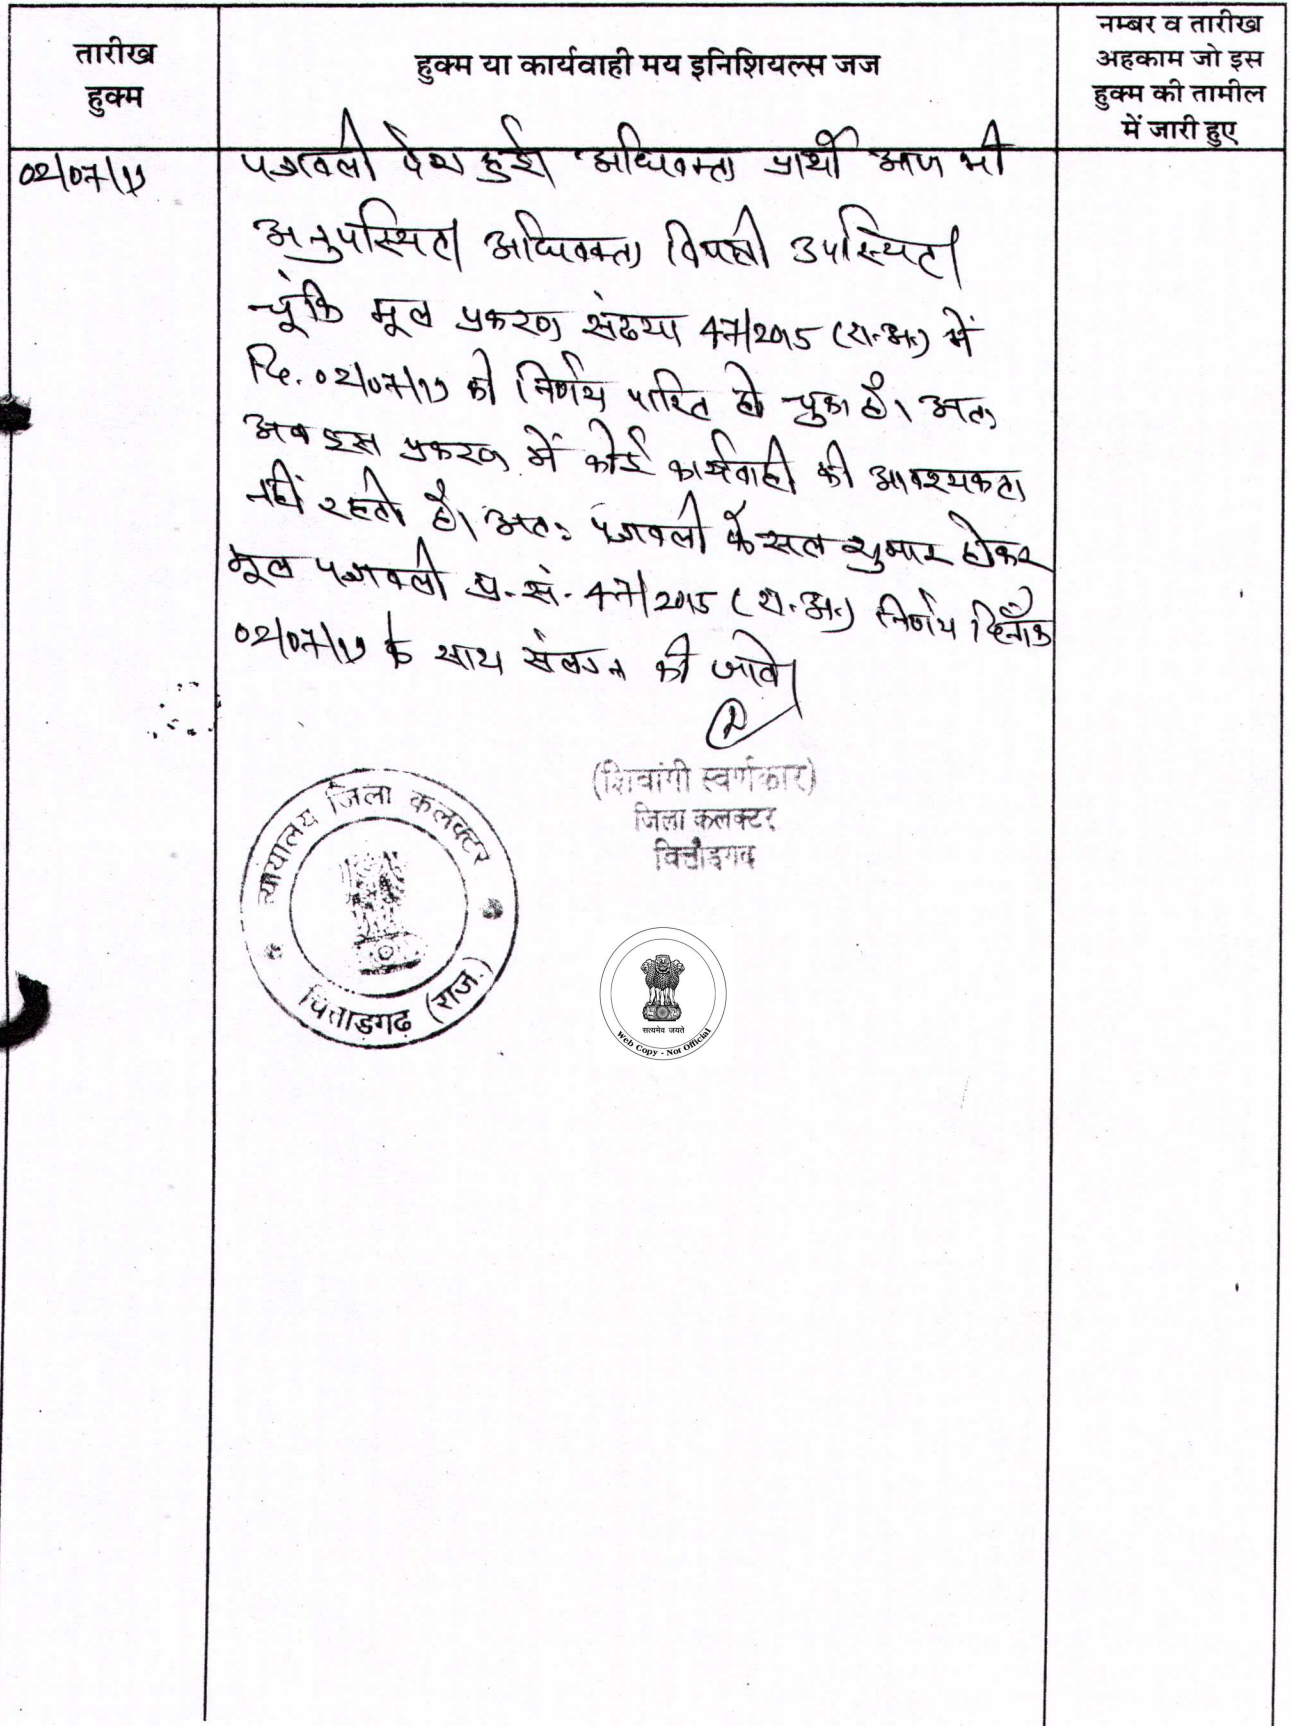 तारीख
हुक्म
हुक्म या कार्यवाही मय इनिशियल्स जज
नम्बर व तारीख
अहकाम जो इस
हुक्म की तामील
में जारी हुए
02/07/19
पत्रावली पेश हुई। अधिवक्ता प्रार्थी आज भी
अनुपस्थित। अधिवक्ता विपक्षी उपस्थित।
चूंकि मूल प्रकरण संख्या 47/2015 (रा.अ.) में
दि. 02/07/19 को निर्णय पारित हो चुका है। अतः
अब इस प्रकरण में कोई कार्यवाही की आवश्यकता
नहीं रहती है। अतः पत्रावली फैसल शुमार होकर
मूल पत्रावली प्र.सं. 47/2015 (रा.अ.) निर्णय दिनाँक
02/07/19 के साथ संलग्न की जावे।
(शिवांगी स्वर्णकार)
जिला कलक्टर
चित्तौड़गढ़
न्यायालय जिला कलक्टर
चित्तौड़गढ़ (राज.)
सत्यमेव जयते
Web Copy - Not Official